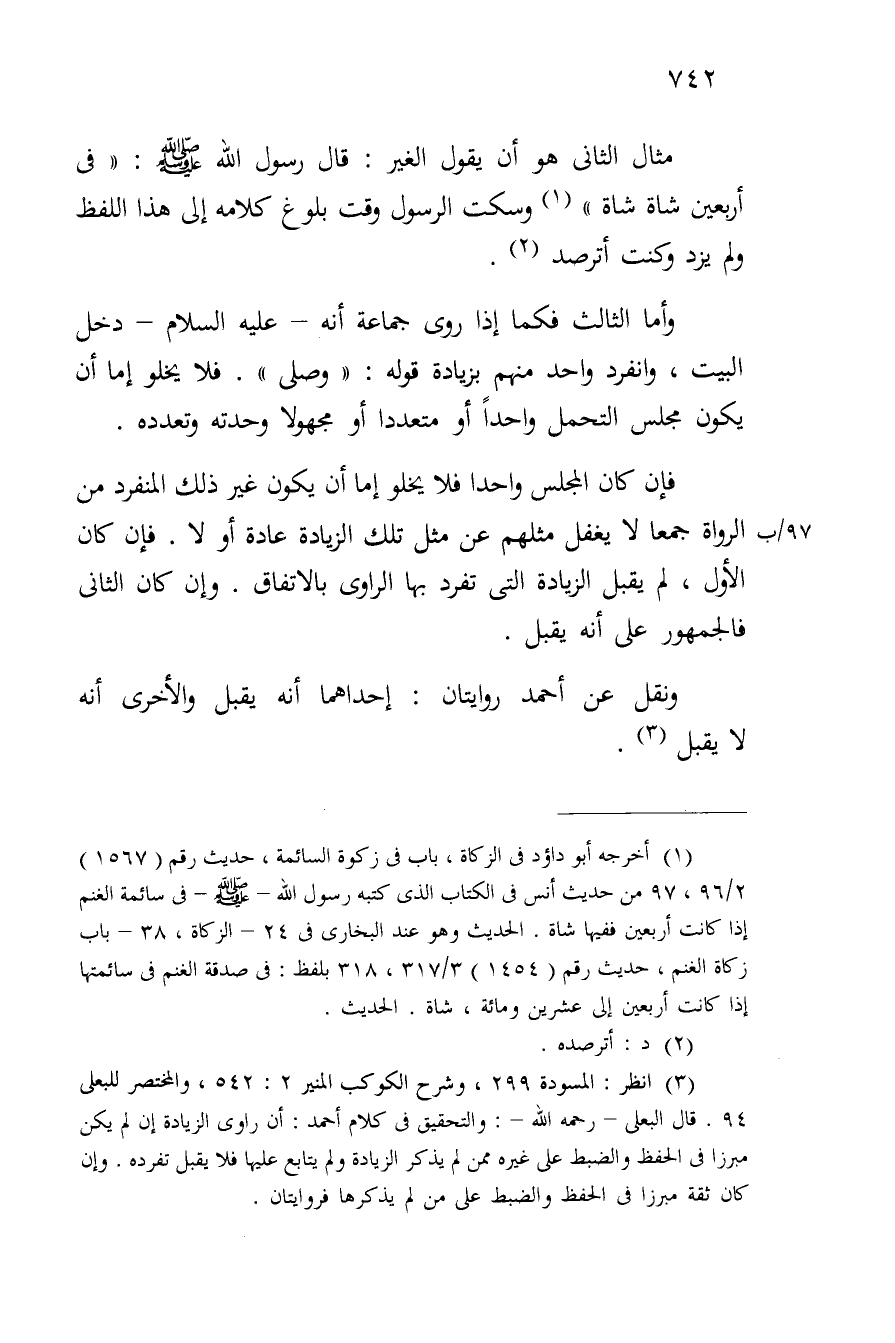 ٧٤٢
مثال الثانى هو أن يقول الغير : قال رسول الله ﷺ : « فى
أربعين شاة شاة » (١) وسكت الرسول وقت بلوغ كلامه إلى هذا اللفظ
ولم يزد وكنت أترصد (٢) .
وأما الثالث فكما إذا روى جماعة أنه – عليه السلام – دخل
البيت ، وانفرد واحد منهم بزيادة قوله : « وصلى » . فلا يخلو إما أن
يكون مجلس التحمل واحداً أو متعددا أو مجهولا وحدته وتعدده .
فإن كان المجلس واحدا فلا يخلو إما أن يكون غير ذلك المنفرد من
٩٧/ب الرواة جمعا لا يغفل مثلهم عن مثل تلك الزيادة عادة أو لا . فإن كان
الأول ، لم يقبل الزيادة التى تفرد بها الراوى بالاتفاق . وإن كان الثانى
فالجمهور على أنه يقبل .
ونقل عن أحمد روايتان : إحداهما أنه يقبل والأخرى أنه
لا يقبل (٣) .
(١) أخرجه أبو داؤد فى الزكاة ، باب فى زكوة السائمة ، حديث رقم ( ١٥٦٧ )
٩٦/٢ ، ٩٧ من حديث أنس فى الكتاب الذى كتبه رسول الله – ﷺ – فى سائمة الغنم
إذا كانت أربعين ففيها شاة . الحديث وهو عند البخارى فى ٢٤ – الزكاة ، ٣٨ – باب
زكاة الغنم ، حديث رقم ( ١٤٥٤ ) ٣١٧/٣ ، ٣١٨ بلفظ : فى صدقة الغنم فى سائمتها
إذا كانت أربعين إلى عشرين ومائة ، شاة . الحديث .
(٢) د : أترصده .
(٣) انظر : المسودة ٢٩٩ ، وشرح الكوكب المنير ٢ : ٥٤٢ ، والمختصر للبعلى
٩٤ . قال البعلى – رحمه الله – : والتحقيق فى كلام أحمد : أن راوى الزيادة إن لم يكن
مبرزا فى الحفظ والضبط على غيره ممن لم يذكر الزيادة ولم يتابع عليها فلا يقبل تفرده . وإن
كان ثقة مبرزا فى الحفظ والضبط على من لم يذكرها فروايتان .